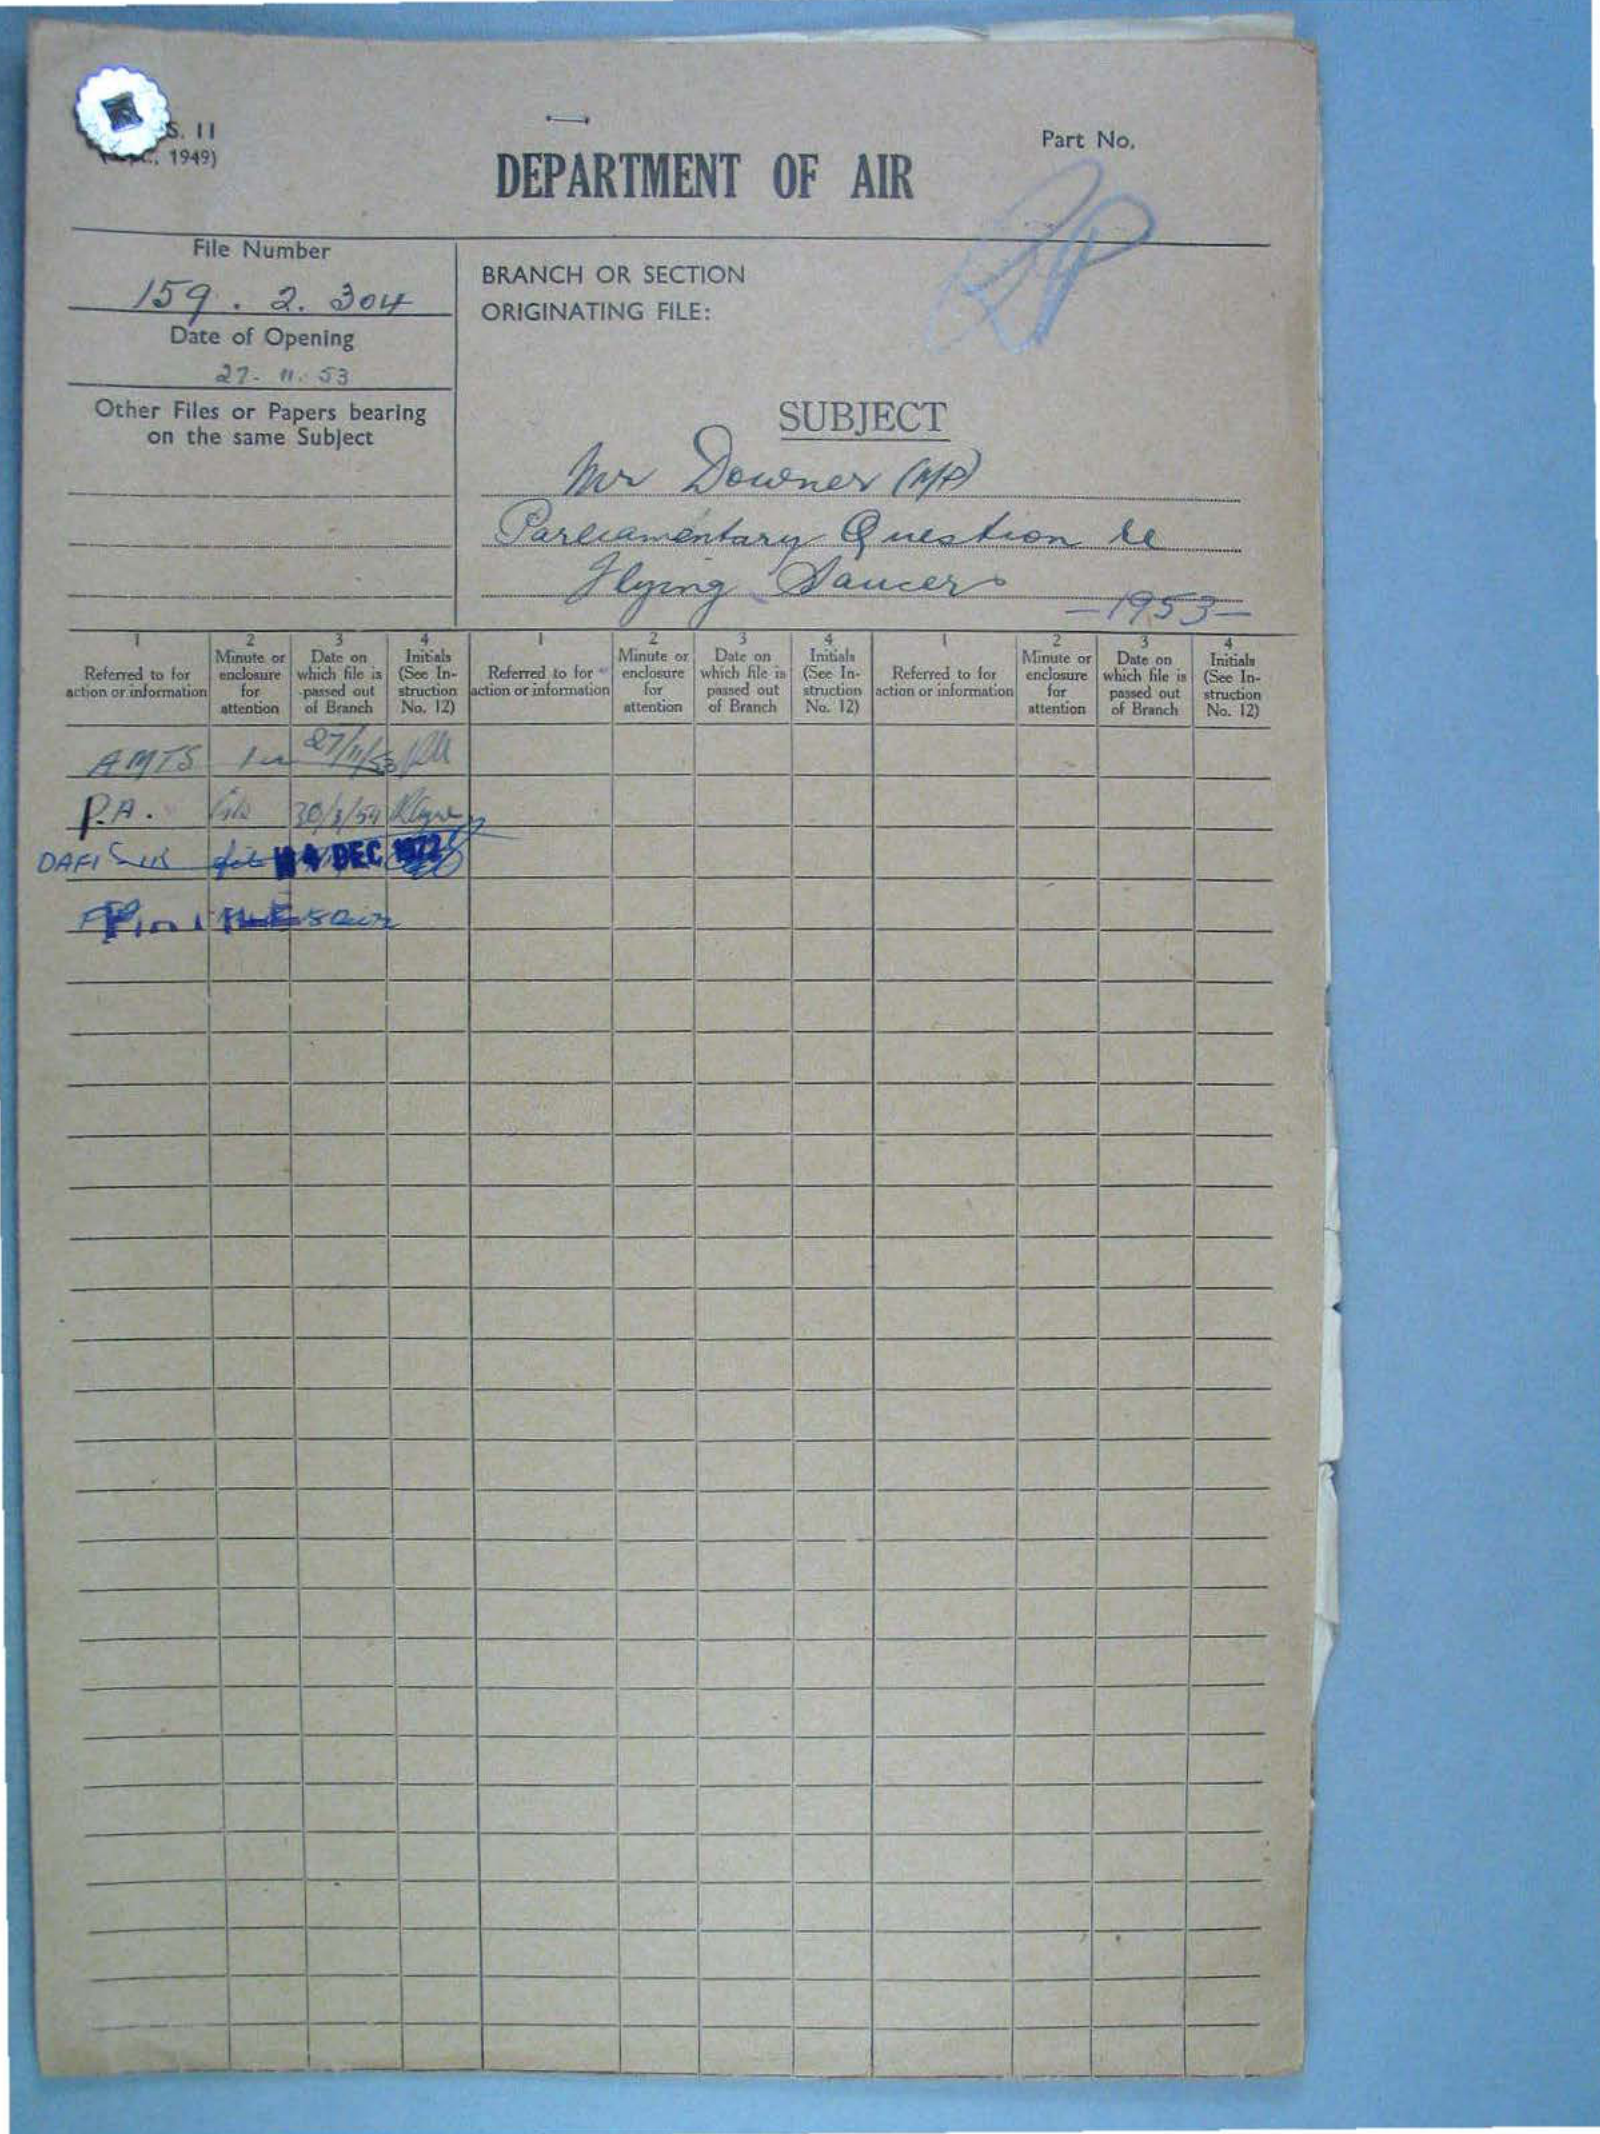 S. 11
1949)
Part No.
DEPARTMENT OF AIR
File Number
159. 2. 304
Date of Opening
27. 11. 53
Other Files or Papers bearing
on the same Subject
BRANCH OR SECTION
ORIGINATING FILE:
SUBJECT
Mr Downer (MP)
Parliamentary Question re
Flying Saucers
—1953—
1 2 3 4 1 2 3 4 1 2 3 4
Referred to for
action or information
Minute or
enclosure
for
attention
Date on
which file is
passed out
of Branch
Initials
(See In-
struction
No. 12)
Referred to for
action or information
Minute or
enclosure
for
attention
Date on
which file is
passed out
of Branch
Initials
(See In-
struction
No. 12)
Referred to for
action or information
Minute or
enclosure
for
attention
Date on
which file is
passed out
of Branch
Initials
(See In-
struction
No. 12)
AMTS 27/11/53
P.A. 30/3/54
DAFI DEC 1972